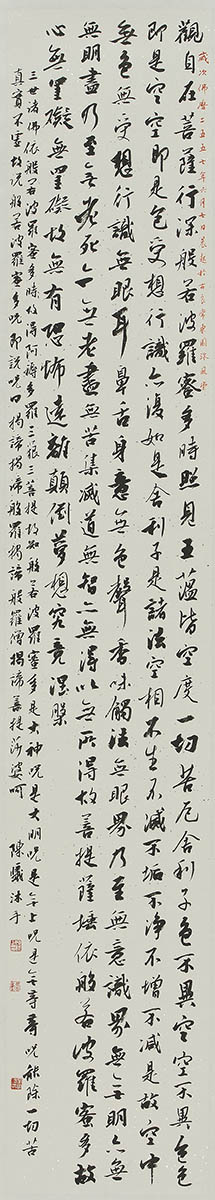 歲次佛曆二五五七年六月七日晨起於
觀自在菩薩行深般若波羅蜜多時照見五蘊皆空度一切苦厄舍利子色不異空空不異色色
即是空空即是色受想行識亦復如是舍利子是諸法空相不生不滅不垢不淨不增不減是故空中
無色無受想行識無眼耳鼻舌身意無色聲香味觸法無眼界乃至無意識界無無明亦無
無明盡乃至無老死亦無老盡無苦集滅道無智亦無得以無所得故菩提薩埵依般若波羅蜜多故
心無罣礙無罣礙故無有恐怖遠離顛倒夢想究竟涅槃
三世諸佛依般若波羅蜜多時故得阿耨多羅三藐三菩提故知般若波羅蜜多是大神咒是大明咒是無上咒是無等等咒能除一切苦
真實不虛故說般若波羅蜜多咒即說咒曰揭諦揭諦般羅揭諦般羅僧揭諦菩提莎婆呵 陳曦沐手